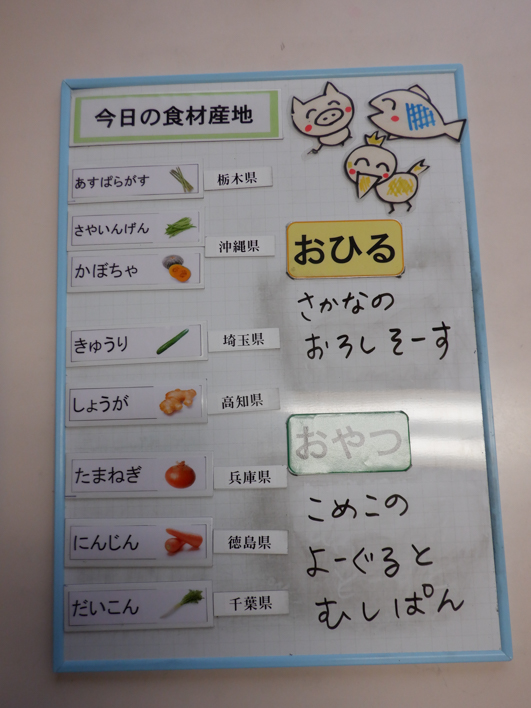 今日の食材産地
あすぱらがす 栃木県
さやいんげん
沖縄県
かぼちゃ
きゅうり 埼玉県
しょうが 高知県
たまねぎ 兵庫県
にんじん 徳島県
だいこん 千葉県
おひる
さかなの
おろしそーす
おやつ
こめこの
よーぐると
むしぱん